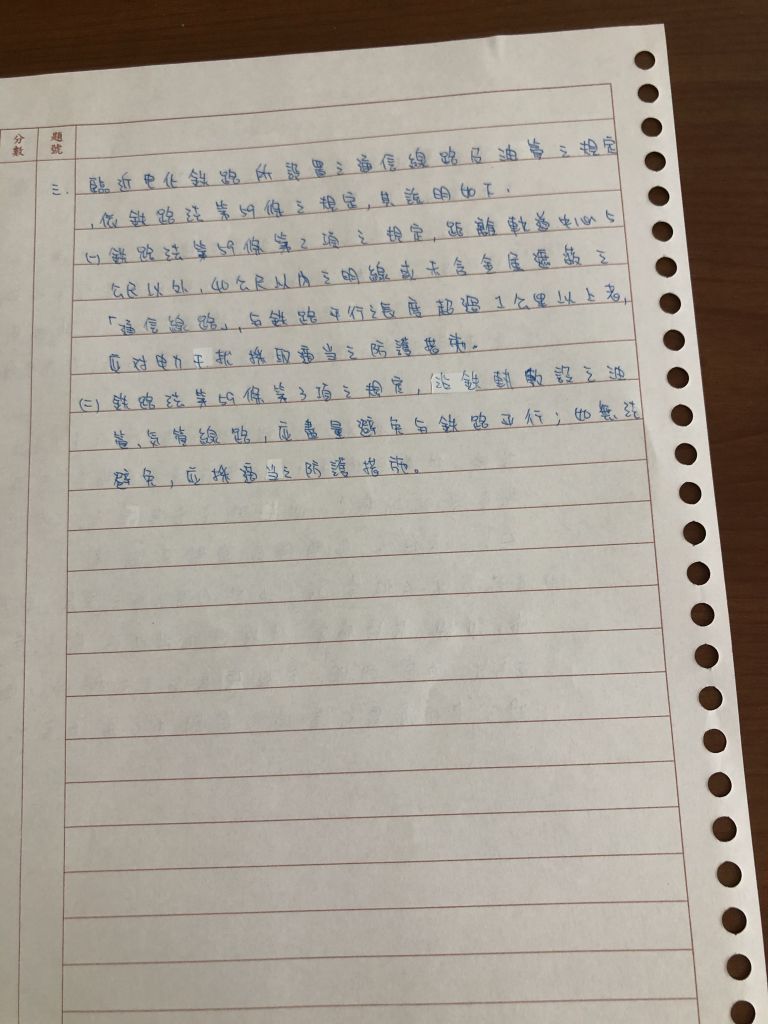 分數 題號
三. 臨近电化鉄路所設置之通信線路及油管之規定
,依鉄路法第59條之規定,其說明如下.
(一)鉄路法第59條第2項之規定,距離軌道中心5
公尺以外,40公尺以內之明線或不含金屬遮蔽之
「通信線路」,与鉄路平行之長度超過1公里以上者,
应对电力干扰採取適当之防護措施。
(二)鉄路法第59條第3項之規定,沿鉄軌敷設之油
管、気管線路,应盡量避免与鉄路並行;如無法
避免,应採適当之防護措施。